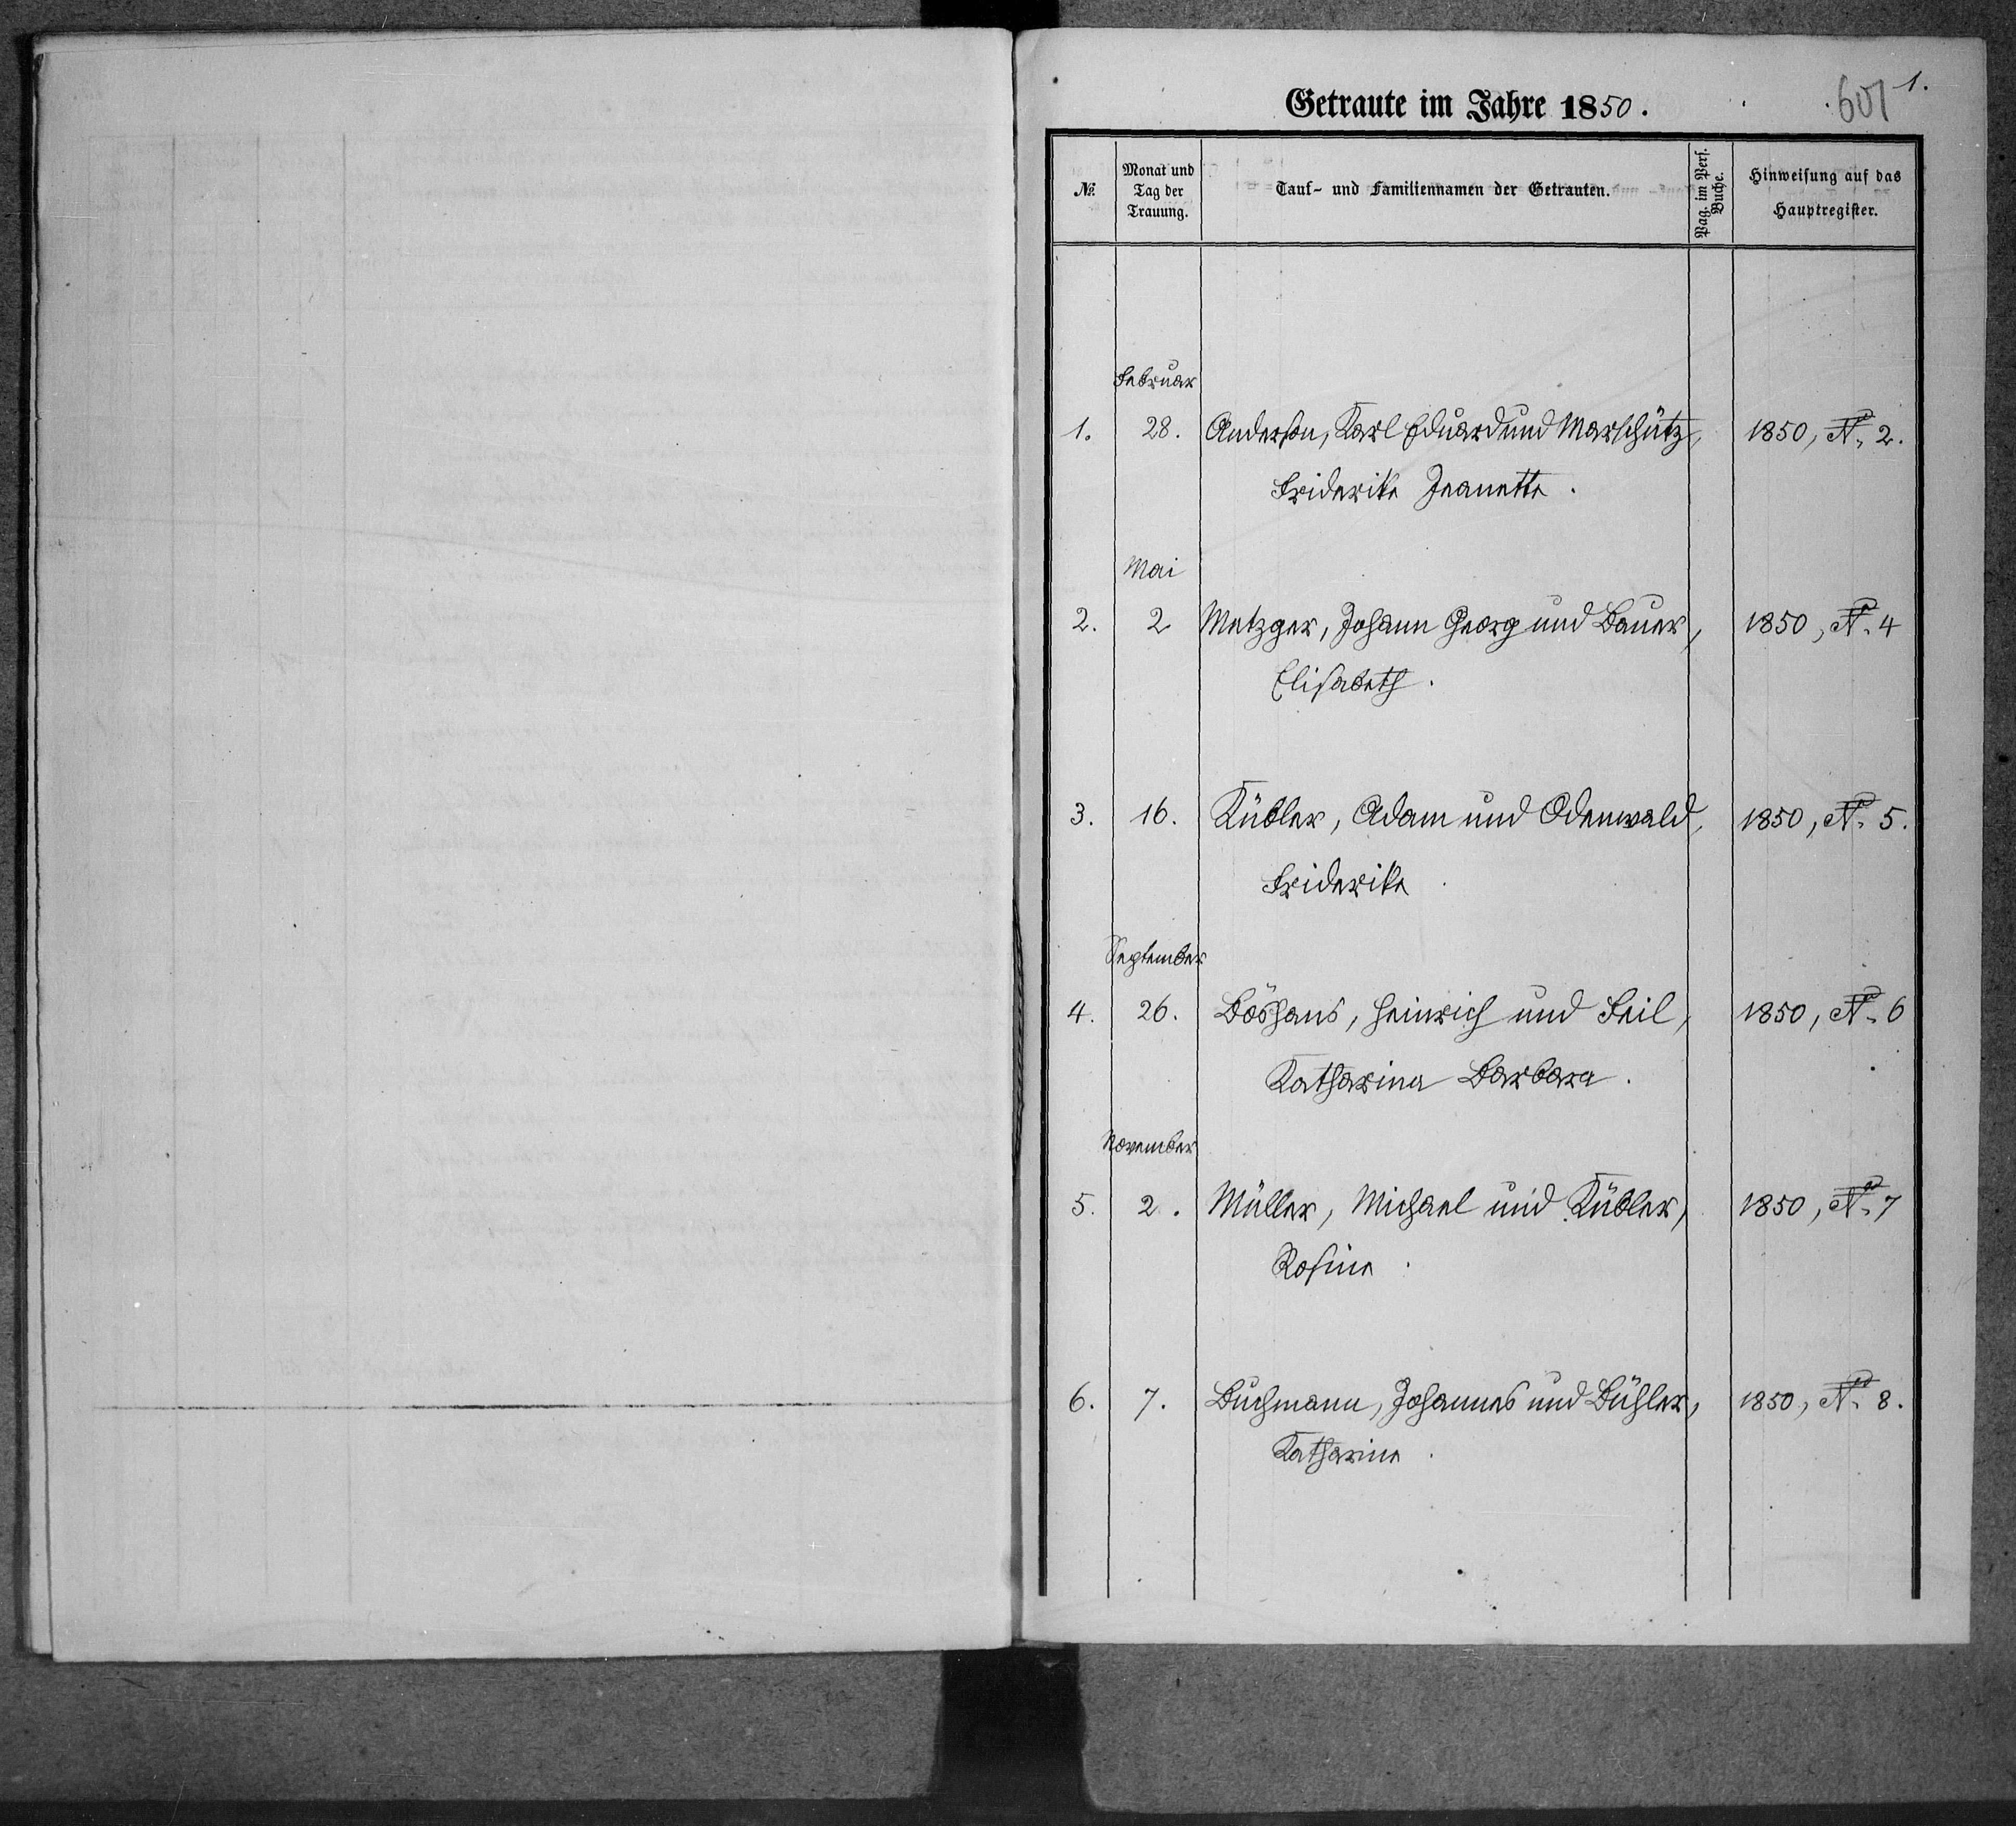 1.
601
Getraute im Jahre 1850.
№.
Monat und
Tag der
Trauung.
Tauf- und Familiennamen der Getrauten.
Pag. im Pers.
Buche.
Hinweisung auf das
Hauptregister.
Februar
1. 28. Anderson, Karl Eduard und Marschütz, 1850, No. 2.
Friderike Jeanette.
Mai
2. 2 Metzger, Johann Georg und Bauer, 1850, No. 4
Elisabeth.
3. 16. Kübler, Adam und Odenwald, 1850, No. 5.
Friderike
September
4. 26. Böshans, Heinrich und Feil, 1850, No. 6
Katharina Barbara.
November
5. 2. Müller, Michael und Kübler, 1850, No. 7
Rosine.
6. 7. Buchmann, Johannes und Bühler, 1850, No. 8.
Katharine.